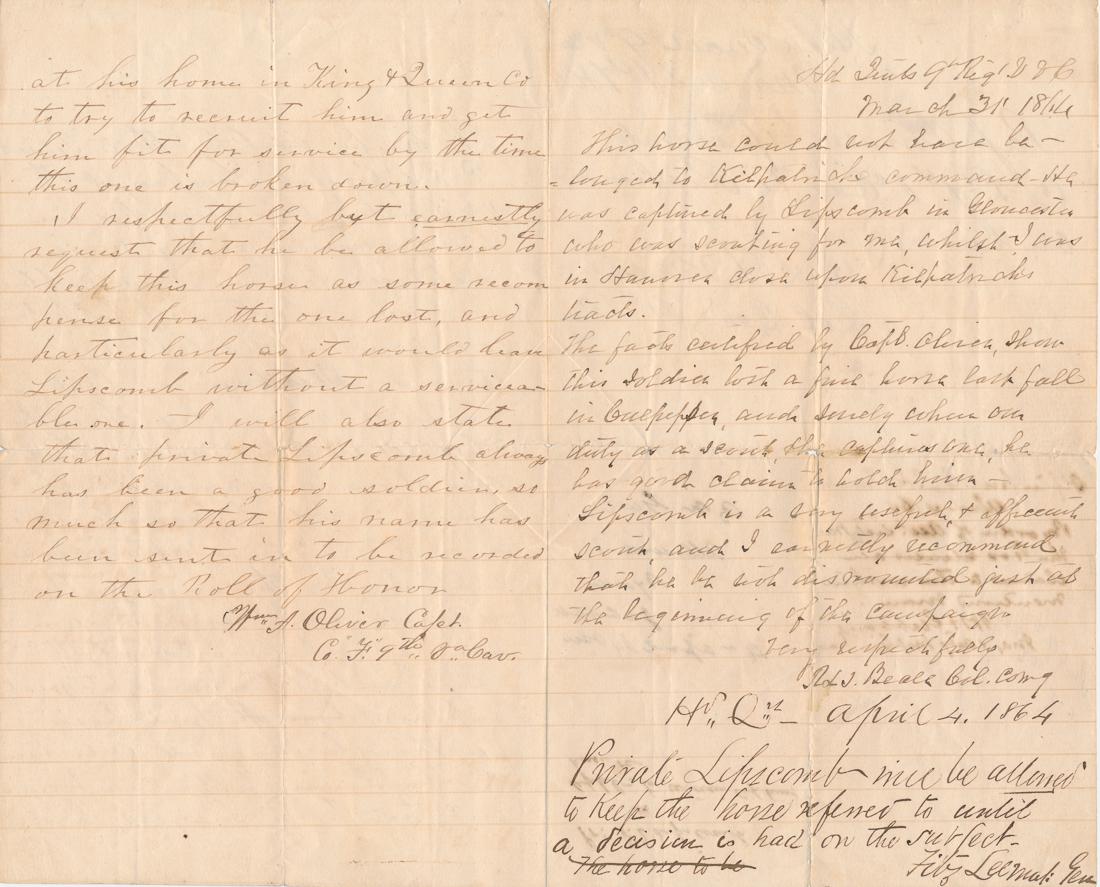 at his home in King & Queen Co
to try to recruit him and get
him fit for service by the time
this one is broken down.
I respectfully but earnestly
request that he be allowed to
keep this horse as some recom
pense for the one lost, and
particularly as it would leave
Lipscomb without a servicea-
ble one. I will also state
that private Lipscomb always
has been a good soldier, so
much so that his name has
been sent in to be recorded
on the Roll of Honor
Wm. A. Oliver Capt.
Co. "F" 9th Va Cav.
Hd Qrts 9th Regt
March 31 1864
This horse could not have be-
-longed to Kilpatrick's command - He
was captured by Lipscomb in Gloucester
who was scouting for me, whilst I was
in Hanover close upon Kilpatrick's
tracts.
The facts certified by Capt. Oliver, show
this soldier lost a fine horse last fall
in Culpepper, and surely when on
duty as a scout, he captures one, he
has good claim to hold him -
Lipscomb is a very useful, & efficient
scout, and I earnestly recommend
that he be not dismounted just at
the beginning of the campaign
Very respectfully
R. L. T. Beale Col. Comg
Hd. Qrs - April 4. 1864
Private Lipscomb will be allowed
to keep the horse referred to until
a decision is had on the subject -
The horse to be
Fitz Lee Maj. Gen